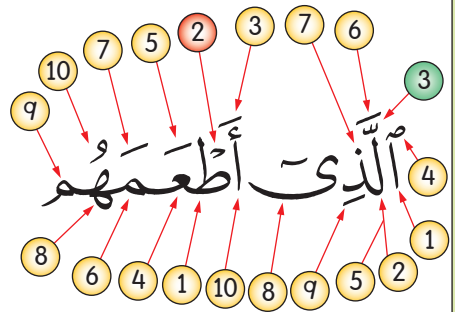 9 10 7 5 2 3 7 6 3
ٱلَّذِىٓ أَطْعَمَهُم
8 6 4 1 10 8 9 5 2 1 4